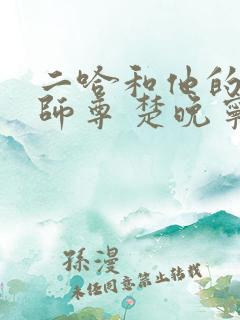 二哈和他的
師尊 楚晚寧
孫漫
未经同意禁止转载